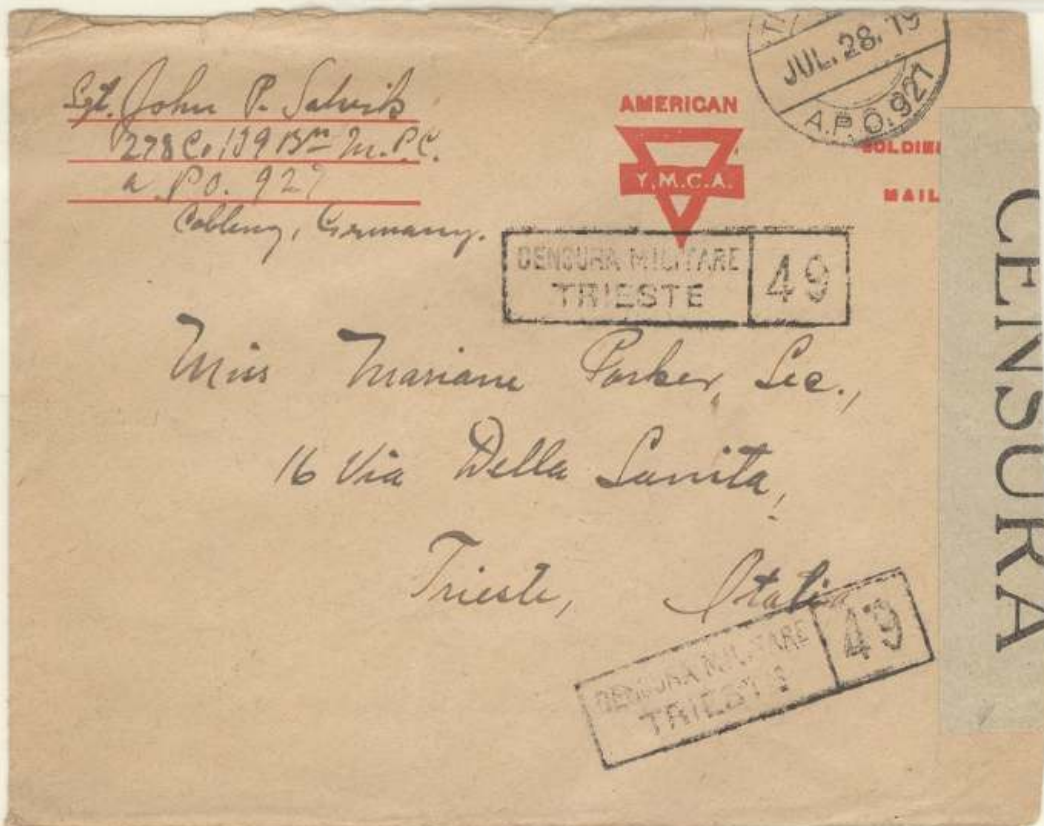 Sgt. John P. Salvik
278 Co. 139 Bn M.P.C.
a. P.O. 927
Coblenz, Germany.
AMERICAN
Y.M.C.A.
SOLDIE
MAIL
JUL. 28. 19
A.P.O. 927
CENSURA MILITARE
TRIESTE
49
Miss Mariane Parker, Sec.,
16 Via Della Sanita,
Trieste, Italia
CENSURA MILITARE
TRIESTE
49
CENSURA